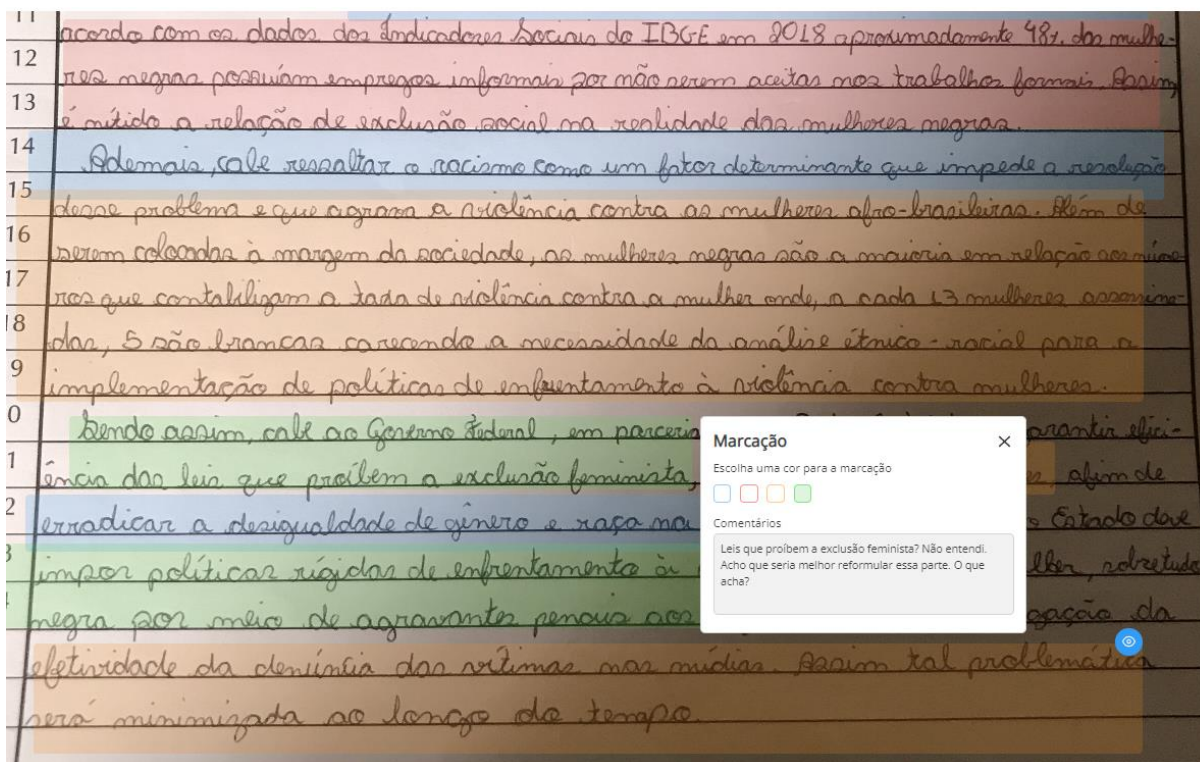 11
acordo com os dados dos Indicadores Sociais do IBGE em 2018 aproximadamente 48%. das mulhe-
12
res negras possuíam empregos informais por não serem aceitas nos trabalhos formais. Assim,
13
é nítido a relação de exclusão social na realidade das mulheres negras.
14
Ademais, cabe ressaltar o racismo como um fator determinante que impede a resolução
15
desse problema e que agrava a violência contra as mulheres afro-brasileiras. Além de
16
serem colocadas à margem da sociedade, as mulheres negras são a maioria em relação aos núme-
17
ros que contabilizam a taxa de violência contra a mulher onde, a cada 13 mulheres assassina-
18
das, 5 são brancas carecendo a necessidade da análise étnico-racial para a
9
implementação de políticas de enfrentamento à violência contra mulheres.
0
Sendo assim, cabe ao Governo Federal, em parceria arantir efici-
1
ência das leis que proíbem a exclusão feminista, afim de
2
erradicar a desigualdade de gênero e raça na Estado deve
3
impor políticas rígidas de enfrentamento à lher, sobretudo
negra por meio de agravantes penais aos gação da
efetividade da denúncia das vítimas nas mídias. Assim tal problemática
será minimizada ao longo do tempo.
Marcação
Escolha uma cor para a marcação
Comentários
Leis que proíbem a exclusão feminista? Não entendi.
Acho que seria melhor reformular essa parte. O que
acha?